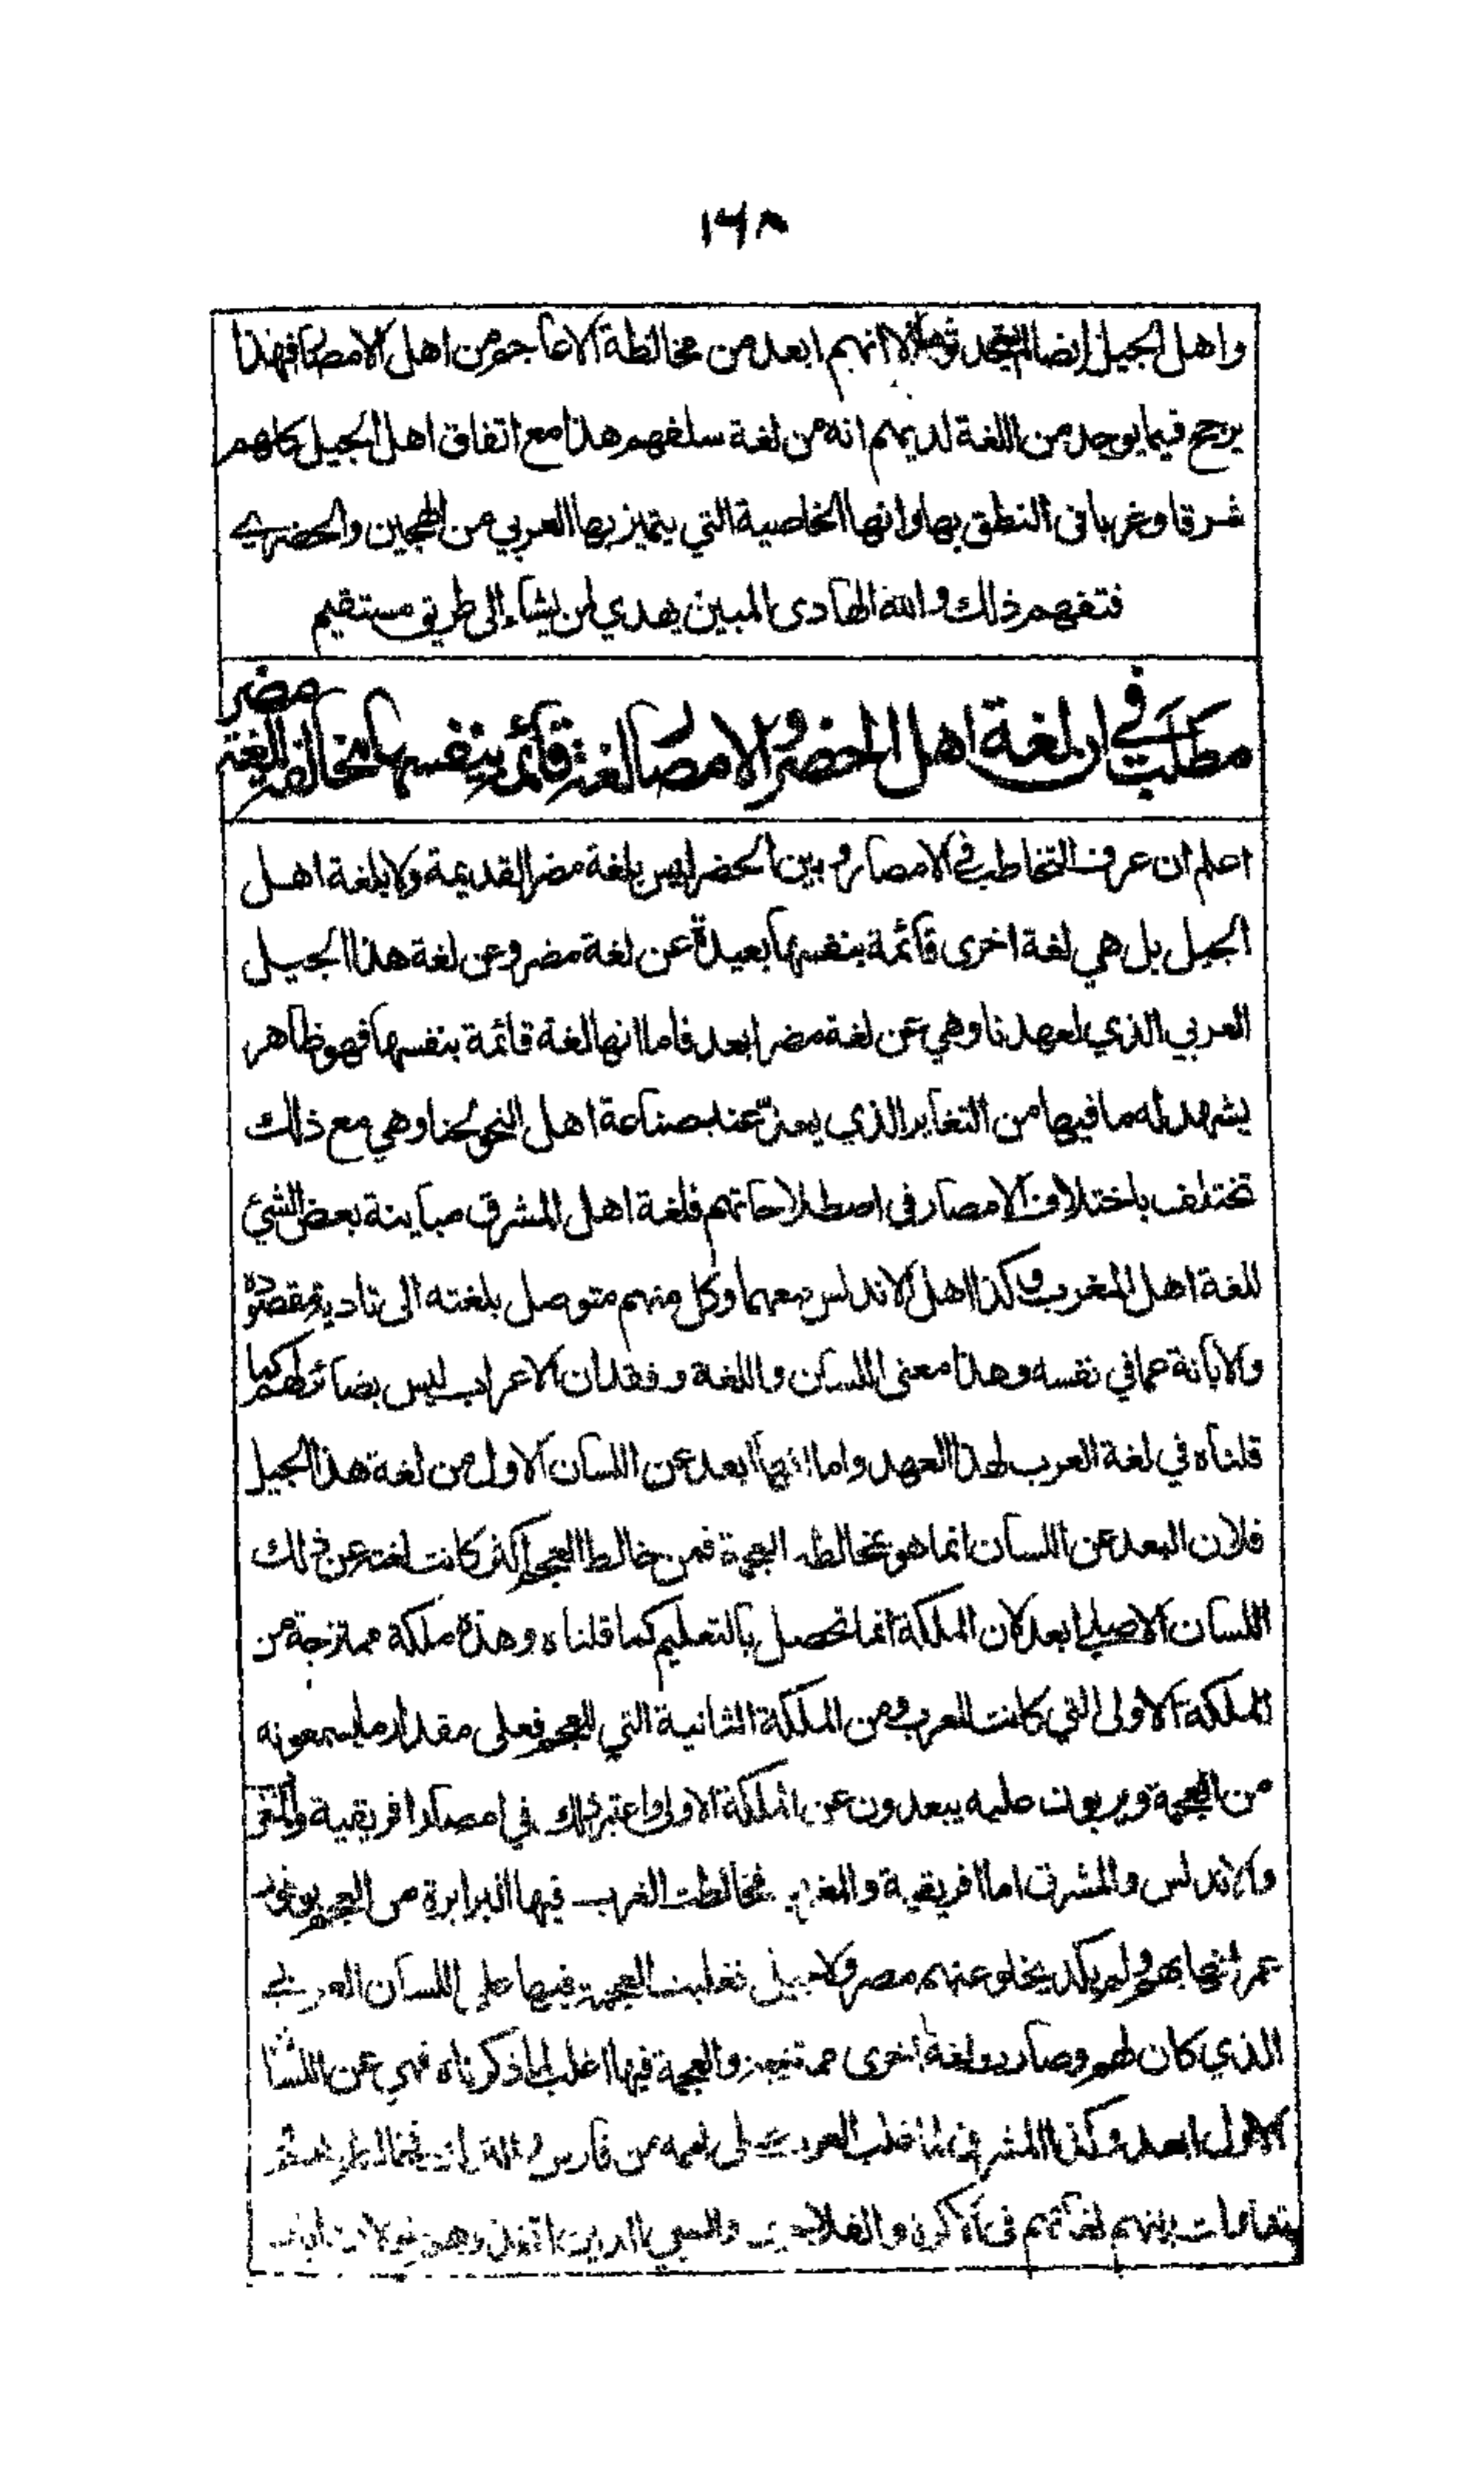 ١٦٨
واهل الجيل ايضا لم يحدثوها الا انهم ابعد من مخالطة الاعاجم من اهل الامصار فهذا
يرجح فيما يوجد من اللغة لديهم انه من لغة سلفهم هذا مع اتفاق اهل الجيل كلهم
شرقا وغربا فى النطق بها وانها الخاصية التي يتميز بها العربي من الهجين والحضري
فتفهم ذلك والله الهادى المبين يهدي لمن يشاء إلى طريق مستقيم
مطلب في ان لغة اهل الحضر والامصار لغة قائمة بنفسها مخالفة للغة مضر
اعلم ان عرف التخاطب في الامصار وبين الحضر ليس بلغة مضر القديمة ولا بلغة اهل
الجيل بل هي لغة اخرى قائمة بنفسها بعيدة عن لغة مضر وعن لغة هذا الجيل
العربي الذي لعهدنا وهي عن لغة مضر ابعد فاما انها لغة قائمة بنفسها فهو ظاهر
يشهد له ما فيها من التغاير الذي يعدّ عند صناعة اهل النحو لحنا وهي مع ذلك
تختلف باختلاف الامصار فى اصطلاحاتهم فلغة اهل المشرق مباينة بعض الشئ
للغة اهل المغرب وكذا اهل الاندلس معهما وكل منهم متوصل بلغته الى تادية مقصوده
والابانة عما في نفسه وهذا معنى اللسان واللغة وفقدان الاعراب ليس بضائر لهم كما
قلناه في لغة العرب لهذا العهد واما انها ابعد عن اللسان الاول من لغة هذا الجيل
فلان البعد عن اللسان انما هو بمخالطة العجمة فمن خالط العجم اكثر كانت لغته عن ذلك
اللسان الاصلي ابعد لان الملكة انما تحصل بالتعليم كما قلناه وهذه ملكة ممتزجة من
الملكة الاولى التي كانت للعرب ومن الملكة الثانية التي للعجم فعلى مقدار ما يسمعونه
من العجمة ويربون عليه يبعدون عن الملكة الاولى واعتبر ذلك في امصار افريقية والمغرب
والاندلس والمشرق اما افريقية والمغرب فخالطت العرب فيها البرابرة من العجم بوفور
عمرانها بهم ولم يكد يخلو عنهم مصر ولا جيل فغلبت العجمة فيها على اللسان العربي
الذي كان لهم وصارت لغة اخرى ممتزجة والعجمة فيها اغلب لما ذكرناه فهي عن اللسان
الاول ابعد وكذا المشرق لما غلب العرب على اممه من فارس والترك فخالطوهم
وتداولت بينهم لغاتهم فى الاكرة والفلاحين والسبي الذين اتخذوهم خولا